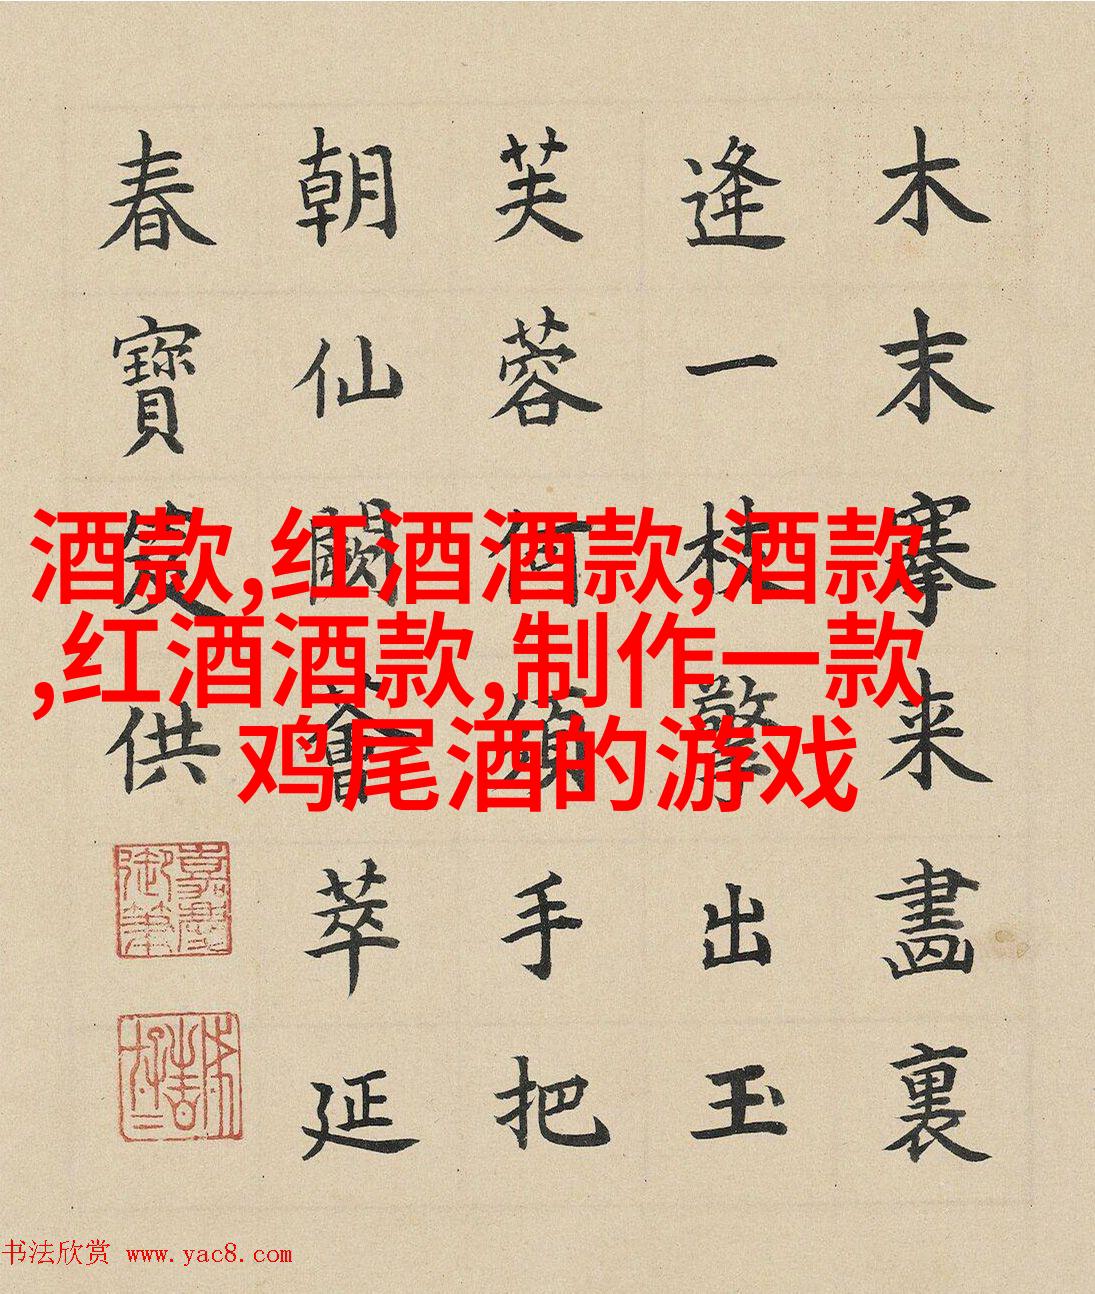 木末搴来畫裏
逢一枝擎出玉
芙蓉何須手把
朝仙闕薈萃延
春寶篆供
嘉慶
御筆
酒款,红酒酒款,酒款
,红酒酒款,制作一款
鸡尾酒的游戏
书法欣赏 www.yac8.com